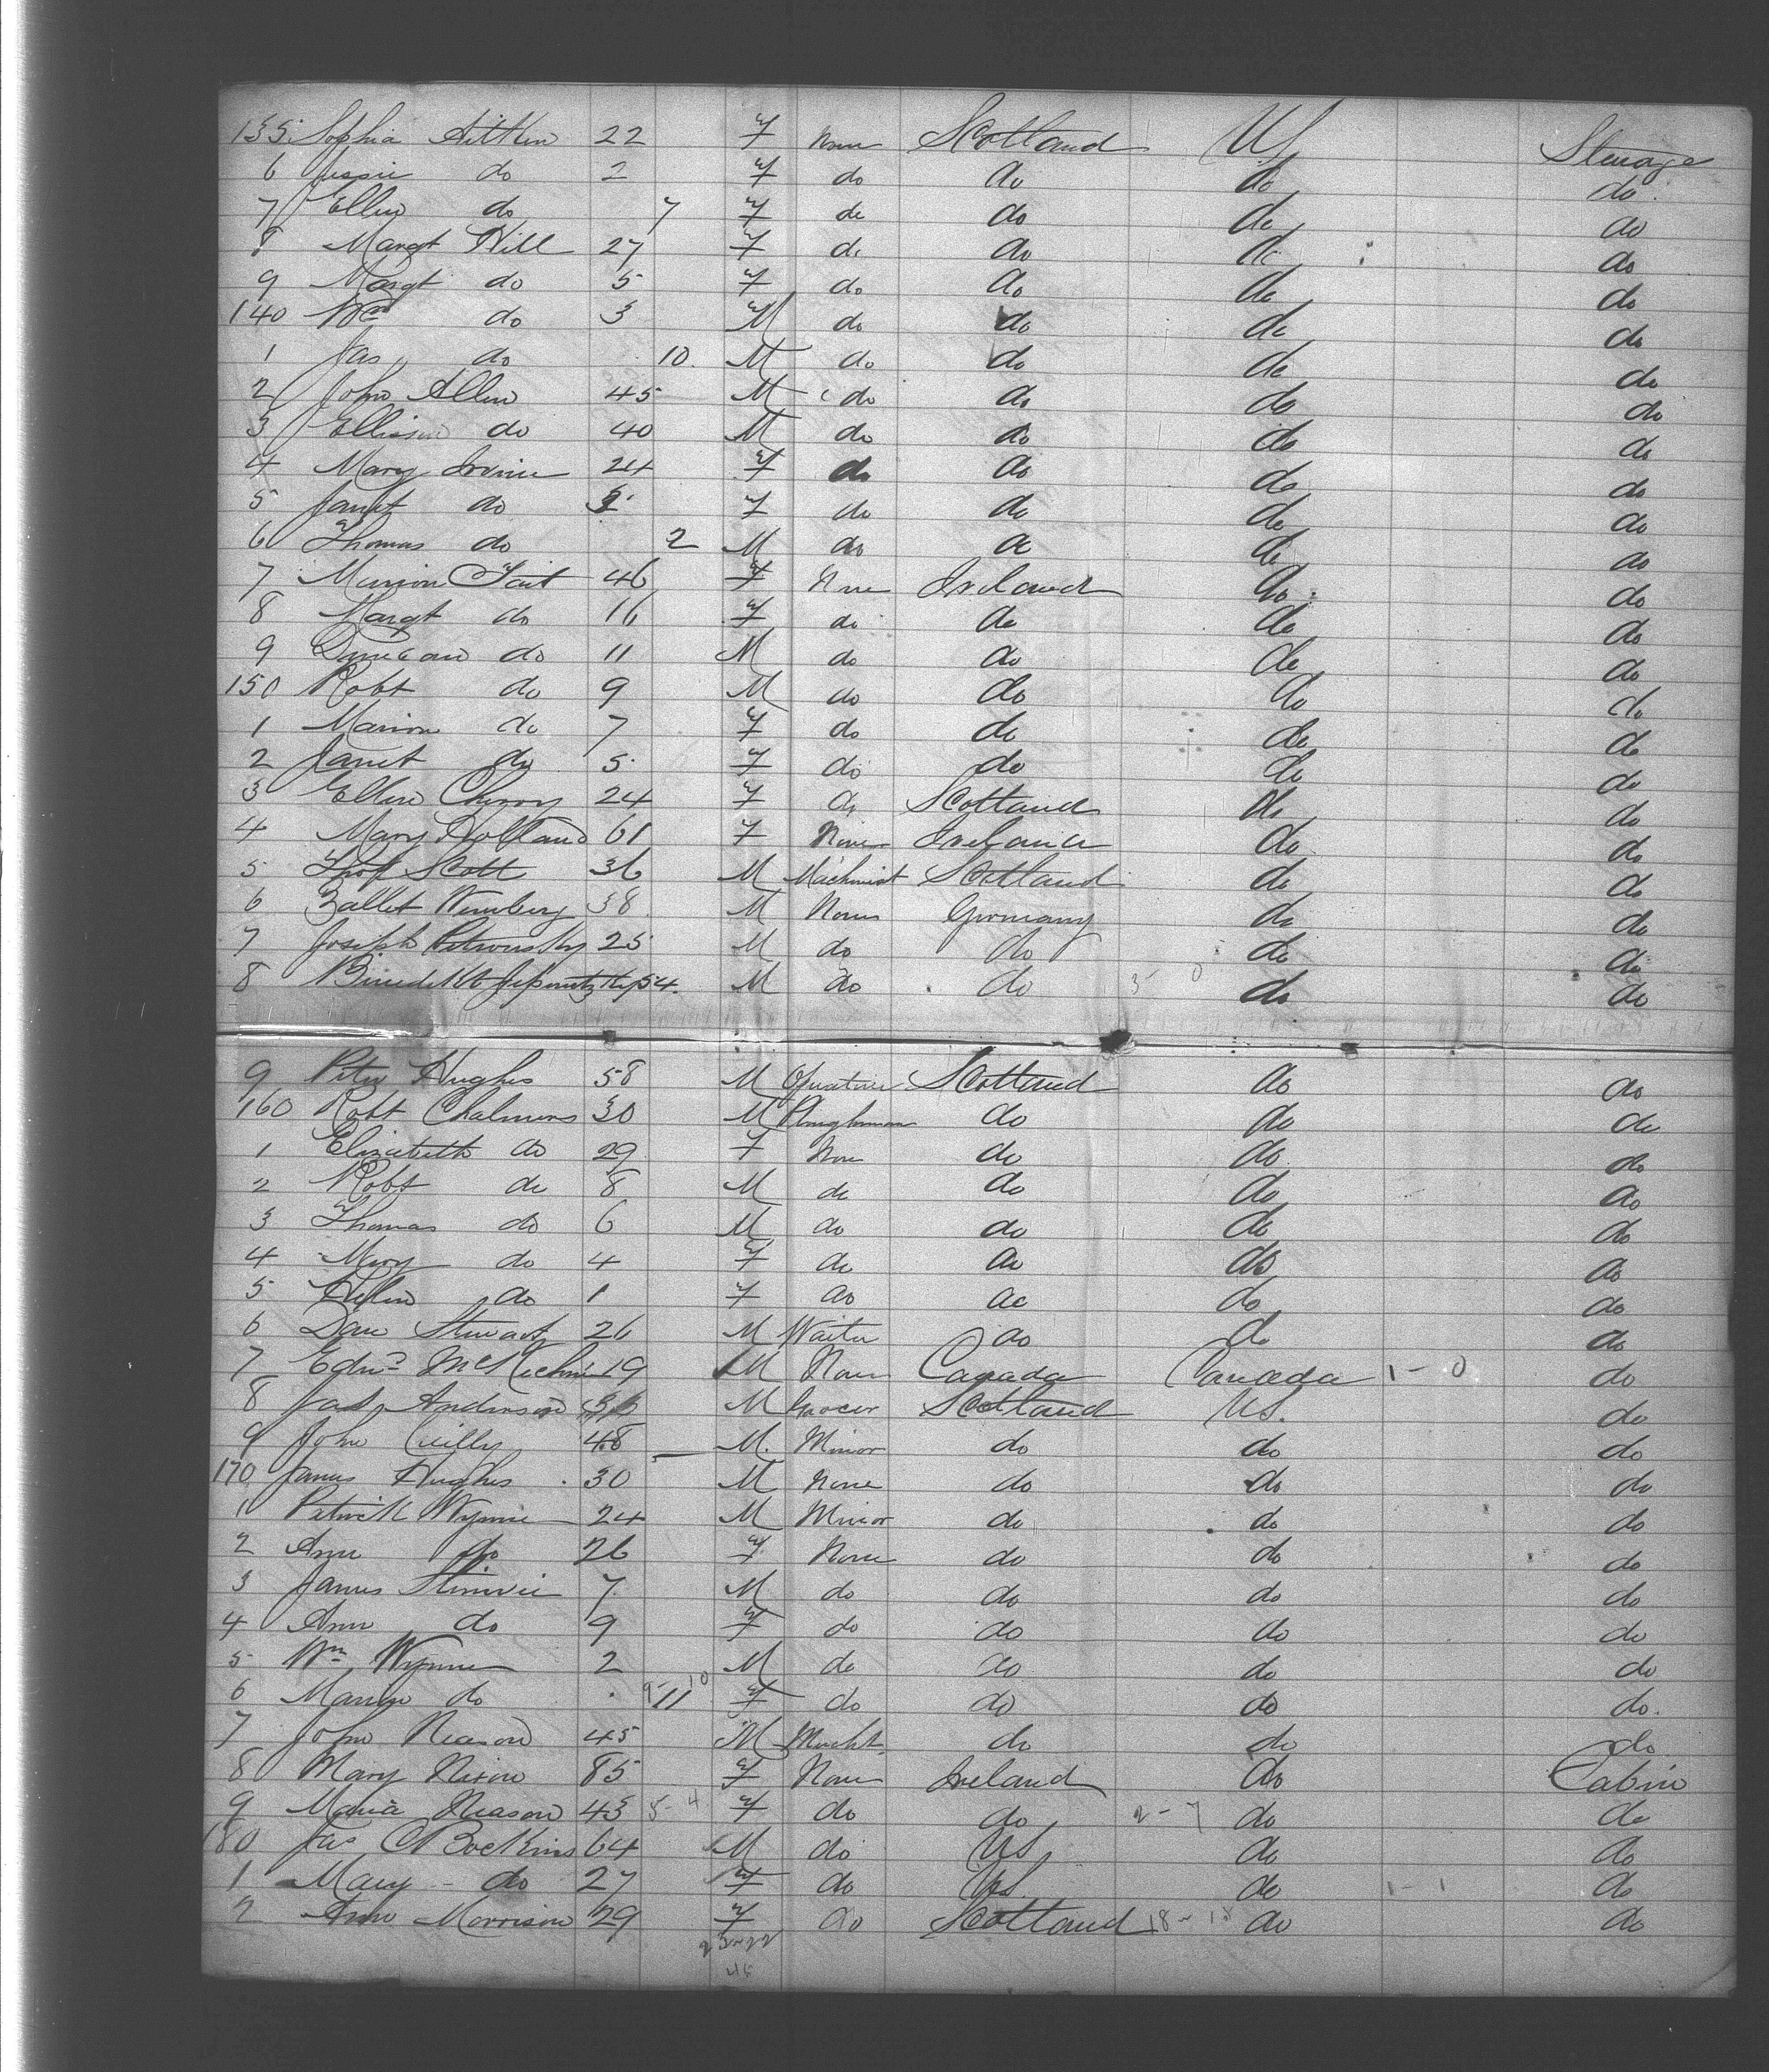 135 Sophia Aitken 22 F None Scotland US Steerage
6 Jessie do 2 F do do do do
7 Ellen do 7 F do do do do
8 Margt Hill 27 F do do do do
9 Margt do 5 F do do do do
140 Wm do 3 M do do do do
1 Jas do 10 M do do do do
2 John Allen 45 M do do do do
3 Ellison do 40 M do do do do
4 Mary Irvine 24 F do do do do
5 Janet do F do do do do
6 Thomas do 2 M do do do do
7 Marion Tait 46 F None Ireland do do
8 Margt do 16 F do do do do
9 Duncan do 11 M do do do do
150 Robt do 9 M do do do do
1 Marion do 7 F do do do do
2 Janet do 5 F do do do do
3 Ellen Cherry 24 F do Scotland do do
4 Mary Holland 61 F None Ireland do do
5 Thos Scott 36 M Machinist Scotland do do
6 Zallet 38 M None Germany do do
7 Joseph 25 M do do do do
8 54 M do do 3-0 do do
9 Peter Hughes 58 M Operative Scotland do do
160 Robt Chalmers 30 M Ploughman do do do
1 Elizabeth do 29 F None do do do
2 Robt do 8 M do do do do
3 Thomas do 6 M do do do do
4 Mary do 4 F do do do do
5 Helen do 1 F do do do do
6 Dan Stewart 26 M Waiter do do do
7 Edwd 19 M None Canada Canada 1-0 do
8 Jas Anderson M Grocer Scotland US. do
9 John Cuilly 48 M. Minor do do do
170 James Hughes 30 M None do do do
1 Patrick Wynne 24 M Minor do do do
2 Ann do 26 F None do do do
3 James 7 M do do do do
4 Ann do 9 F do do do do
5 Wm Wynne 2 M do do do do
6 do 11 F do do do do.
7 John Neason 45 M Mercht do do do
8 Mary Nixon 85 F None Ireland do Cabin
9 Maria Neason 43 5-4 F do do 2-7 do do
180 Jas 64 M do US do do
1 Mary do 27 F do US do 1-1 do
2 Ann Morrison 29 F do Scotland do do